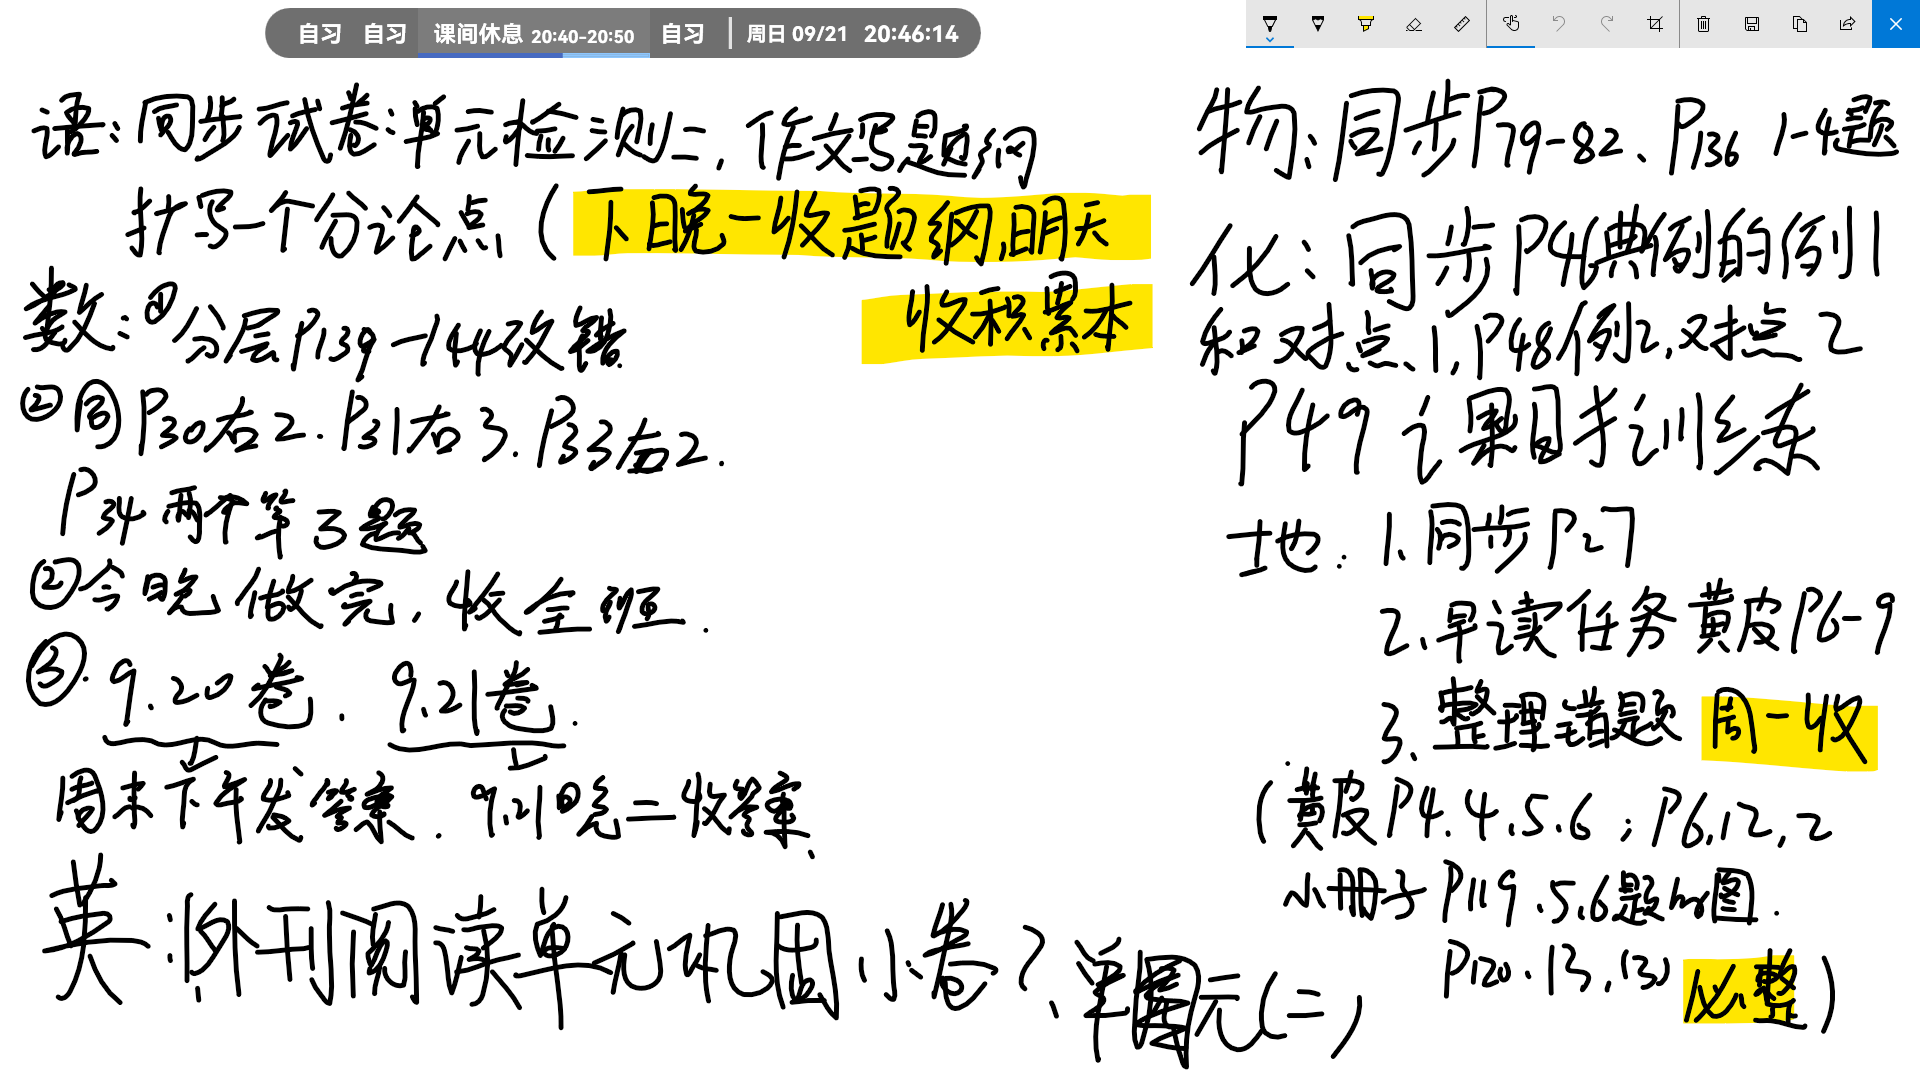 自习 自习 课间休息 20:40-20:50 自习 周日 09/21 20:46:14
语:同步试卷:单元检测二,作文写题纲
抄写一个分论点(下晚一收题纲,明天
收积累本
数:①分层P139-144改错.
②同P30右2.P31右3.P33右2.
P34两个第3题
②今晚做完,收全班.
③.9.20卷.9.21卷.
周末下午发答案.9.21晚二收答案、
英:外刊阅读单元巩固小卷2、单元(二)
物:同步P79-82、P136 1-4题
化:同步P46典例的例1
和对点、1,P48例2,对点2
P49 课目才训练
地:1、同步P27
2、早读任务黄皮P6-9
3、整理错题 周一收
(黄皮P4.4.5.6;P6,12,2
小册子P119.5,6题
图.
P120.13,(3)必整)